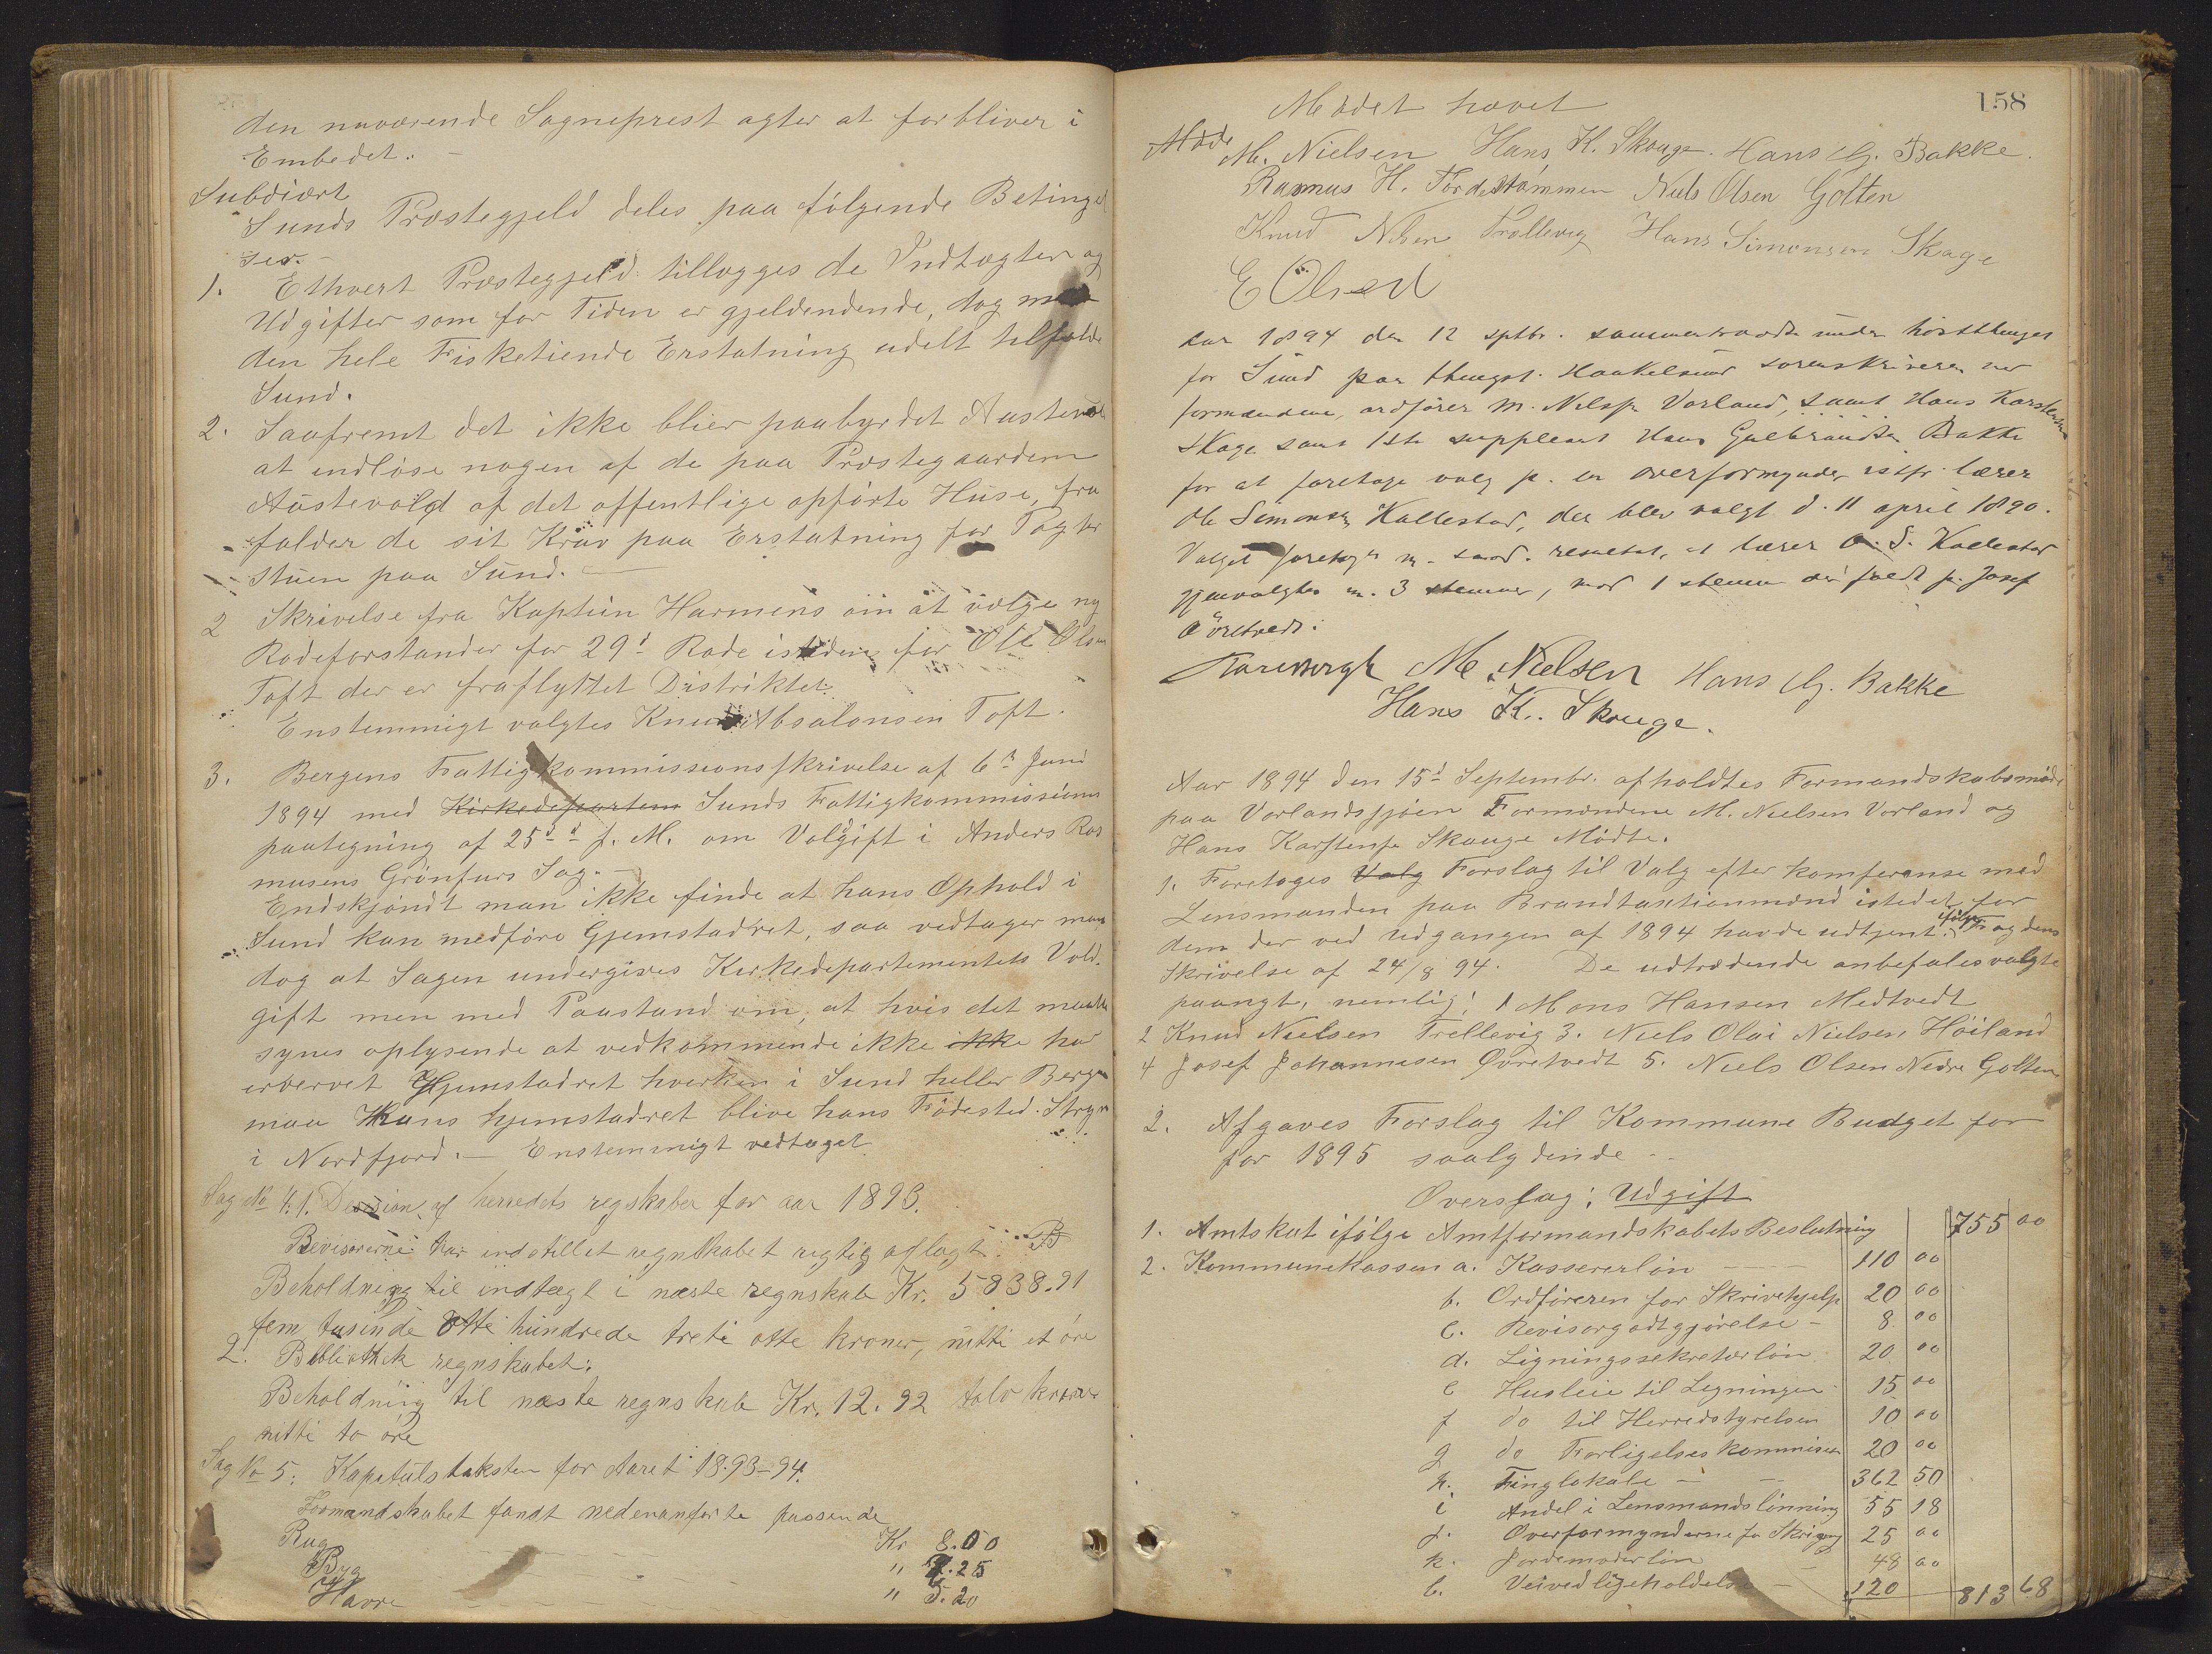 den nuværende Sogneprest agter at forbliver i
Embedet. –
Subdiært
Sunds Præstegjeld deles paa følgende Betingel
ser. –
1. Ethvert Præstegjeld tillægges de Indtægter og
Udgifter som for Tiden er gjeldendende, dog maa
den hele Fisketiende Erstatning udelt tilfalde
Sund.
2. Saafremt det ikke blier paabyrdet Austevold
at indløse nogen af de paa Præstegaarden
Austevold af det offentlige opførte Huse, fra
falder de sit Krav paa Erstatning for Pagter
stuen paa Sund. –
2 Skrivelse fra Kaptein Harmens om at vælge ny
Rodeforstander for 29d Rode istedenfor Ole Olsen
Toft der er fraflyttet Distriktet.
Enstemmigt valgtes Knud Absalonsen Toft.
3. Bergens Fattigkommissions skrivelse af 6d Juni
1894 med Kirkedepartem Sunds Fattigkommissions
paategning af 25d d f. M. om Voldgift i Anders Ras
musens Grönfurs Sag. –
Endskjöndt man ikke finde at hans Ophold i
Sund kan medføre Gjemstadret, saa vedtager man
dog at Sagen undergives Kirkedepartementets Vold.
gift men med Paastand om, at hvis det maatte
synes oplysende at vedkommende ikke ikke har
erhvervet Hjemstadret hverken i Sund heller Bergen
maa Hans hjemstadret blive hans Födested. Stryn
i Nordfjord. – Enstemmigt vedtaget.
Sag No 4: 1. Desision af herredets regskaber for aar 1893.
Revisorerne har indstillet regnskabet rigtig aflagt.
Beholdning til indtægt i næste regnskab Kr. 5838.91
fem tusinde otte hundrede treti otte kroner, nitti et øre
2. Bibliothek regnskabet:
Beholdning til næste regnskab Kr. 12.92 tolv kroner
nitti to øre
Sag No 5: Kapitulstaksten for Aaret 1893–94.
Formandskabet fandt nedenanførte passende
Rug Kr 8.00
Byg " 7.25
Havre " 5.20
158
Mödet hævet
Møde
M. Nielsen Hans K. Skouge. Hans G. Bakke.
Rasmus H. Tördestömmen Niels Olsen Golten
Knud Nilsen Trollevig Hans Simonsen Skage
E Olsen
Aar 1894 den 12 sptbr. sammentraadte under höstthinget
for Sund paa thingst. Haakelsund sorenskriveren
formændene, ordfører M. Nilsen Vorland, samt Hans Karstensen
Skage samt 1ste suppleant Hans Gulbrandsen Bakke
for at foretage valg p. en overformynder istfr. lærer
Ole Simonsen Kallestad, der blev valgt d. 11 april 1890.
Valget foretoges m. saad. resultat, at lærer O. S. Kallestad
gjenvalgtes m. 3 stemmer, mod 1 stemme der faldt p. Josef
Övretvedt.
M. Nielsen Hans G. Bakke
Hans K. Skouge.
Aar 1894 den 15d Septembr. afholdtes Formandskabsmöde
paa Vorlandssjöen Formændene M. Nielsen Vorland og
Hans Karstensen Skauge Mödte.
1. Foretoges Valg Forslag til Valg efter komferanse med
Lensmanden paa Brandtaxtionmænd istedet for
dem der ved Udgangen af 1894 havde udtjent. ifølge Fogdens
Skrivelse af 24/8 94. De udtrædende anbefales valgte
paanyt, nemlig: 1 Mons Hansen Medtvedt
2 Knud Nielsen Trellevig 3. Niels Olai Nielsen Höiland
4 Josef Johannesen Øvretvedt 5. Niels Olsen Nedre Golten
2. Afgaves Forslag til Kommune Budget for
for 1895 saalydende –
Overslag: Udgift
1. Amtskat ifølge Amtformandskabets Beslutning 755 00
2. Kommunekassen a. Kassererløn – – 110 00
b. Ordføreren for Skrivehjelp 20 00
c. Revisorgodtgjørelse – 8 00
d. Ligningssekretærløn 20 00
e Husleie til Legningen 15 00
f do til Herredstyrelsen 10 00
g do Forligelseskommissen 20 00
h. Tinglokale – – 362 50
i Andel i Lensmandslönning 55 18
j. Overformynderne for Skrivning 25 00
k. Jordemoderløn – 48 00
l. Veivedligeholdelse – 120 813 68